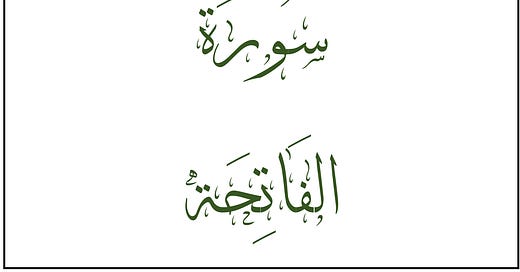 سُورَة
الفَاتِحَة